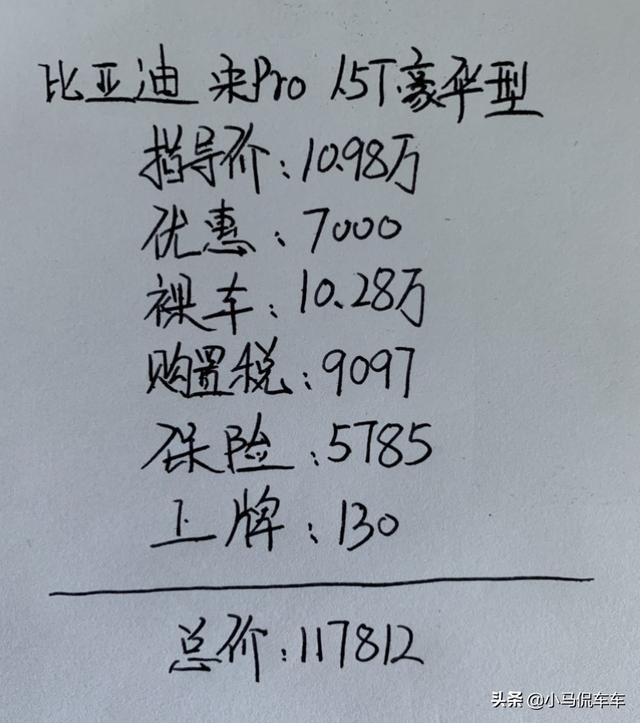 比亚迪 宋Pro 1.5T豪华型
指导价:10.98万
优惠:7000
裸车:10.28万
购置税:9097
保险:5785
上牌:130
总价:117812
头条 @小马侃车车